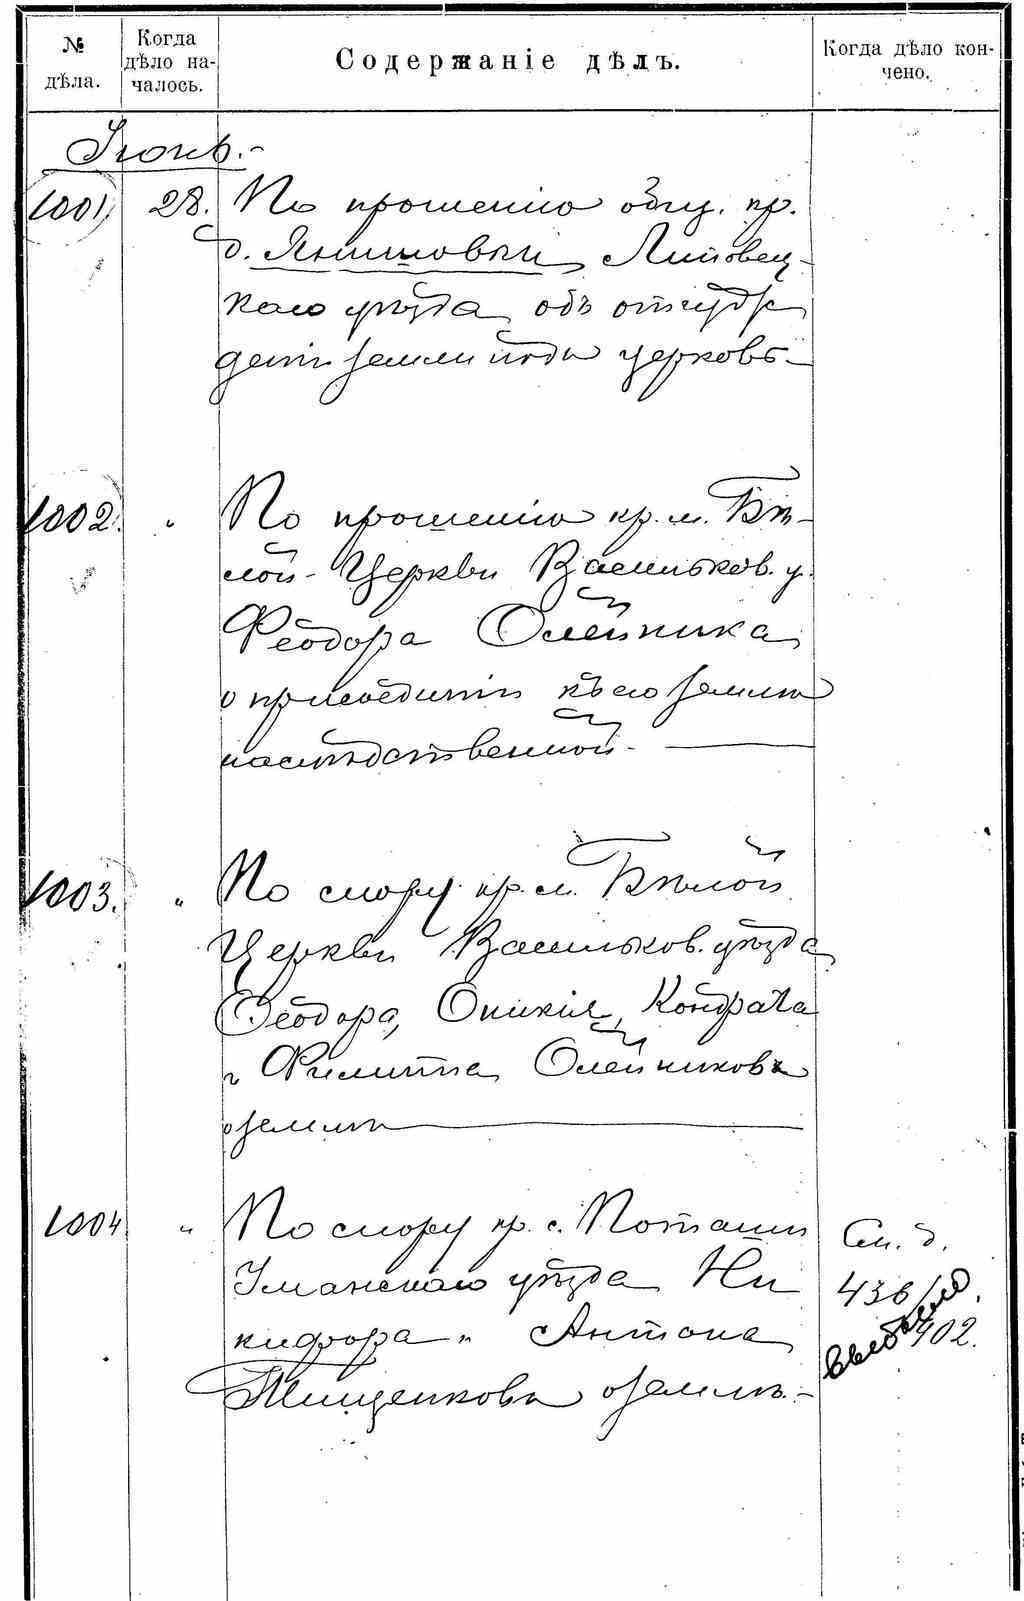 № дѣла.
Когда дѣло началось.
Содержаніе дѣлъ.
Когда дѣло кончено.
Іюнь.-
1001 28. По прошенію общ. кр.
д. Янишовки, Липовец-
каго уѣзда, объ отчужд
деніи земли подъ церковь-
1002. " По прошенію кр. м. Бѣ-
лой-Церкви Васильков. у.
Феодора Олейника
о присоединеніи къ его землѣ
наслѣдственной.
1003. " По спору кр. м. Бѣлой
Церкви Васильков. уѣзда
Феодора, Кондрата
и Филиппа Олейниковъ
о землѣ
1004 " По спору кр. с. Поташи
Уманскаго уѣзда Ни
кифора и Антона
Тищенковъ о землѣ.-
См. д.
436/
902.